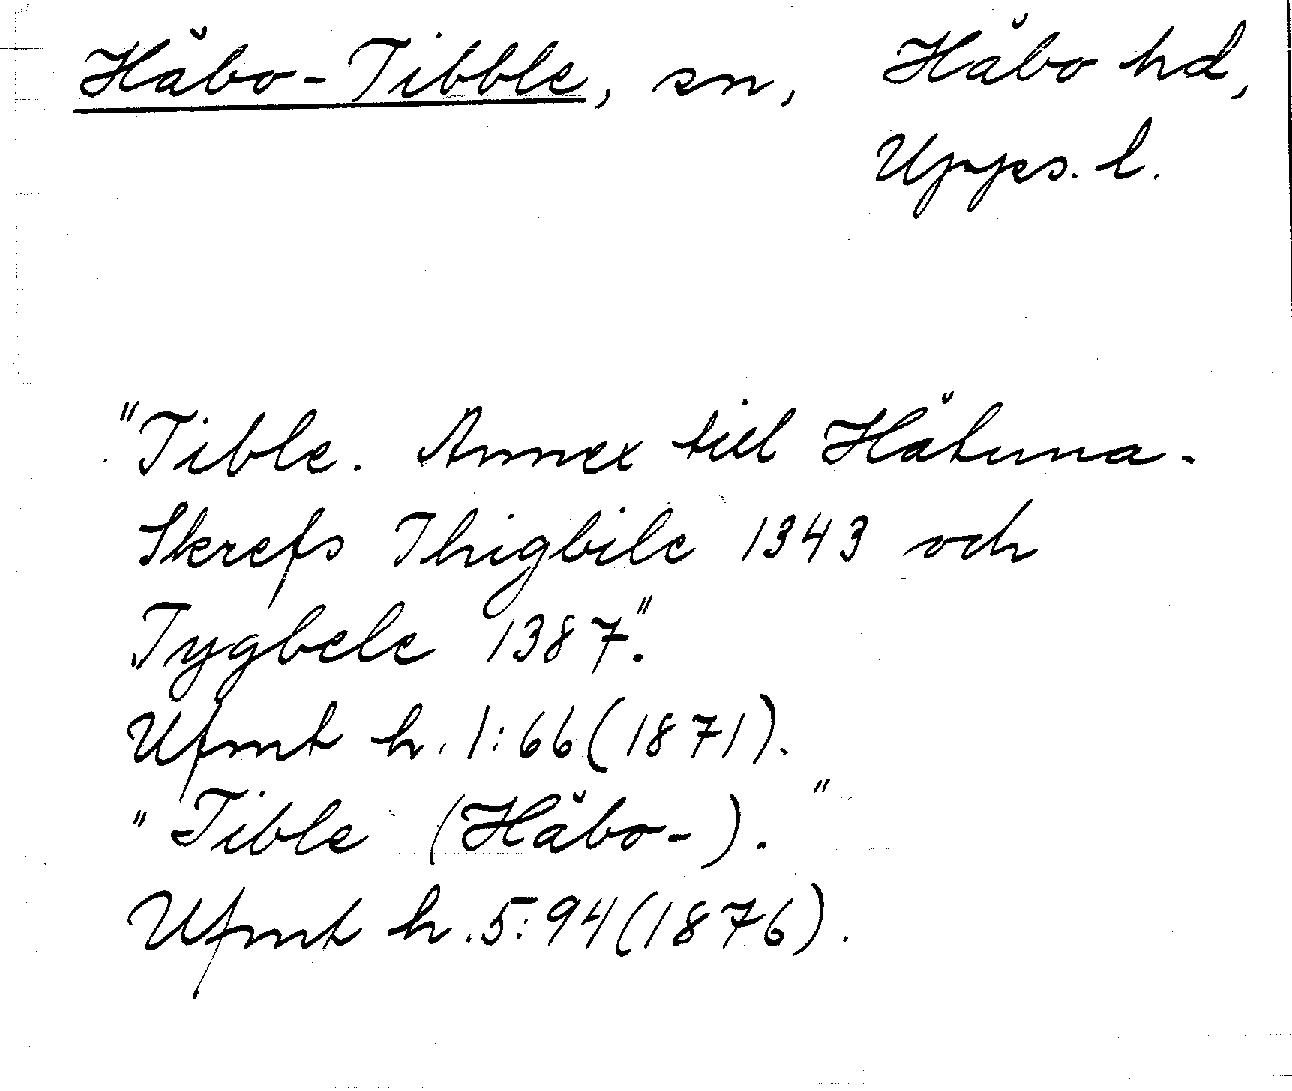 Håbo-Tibble, sn, Håbo hd,
Upps. l.
"Tible. Annex till Håtuna.
Skrefs Thigbile 1343 och
Tygbele 1387".
Ufmt h. 1:66(1871).
"Tible (Håbo-)."
Ufmt h. 5:94(1876).